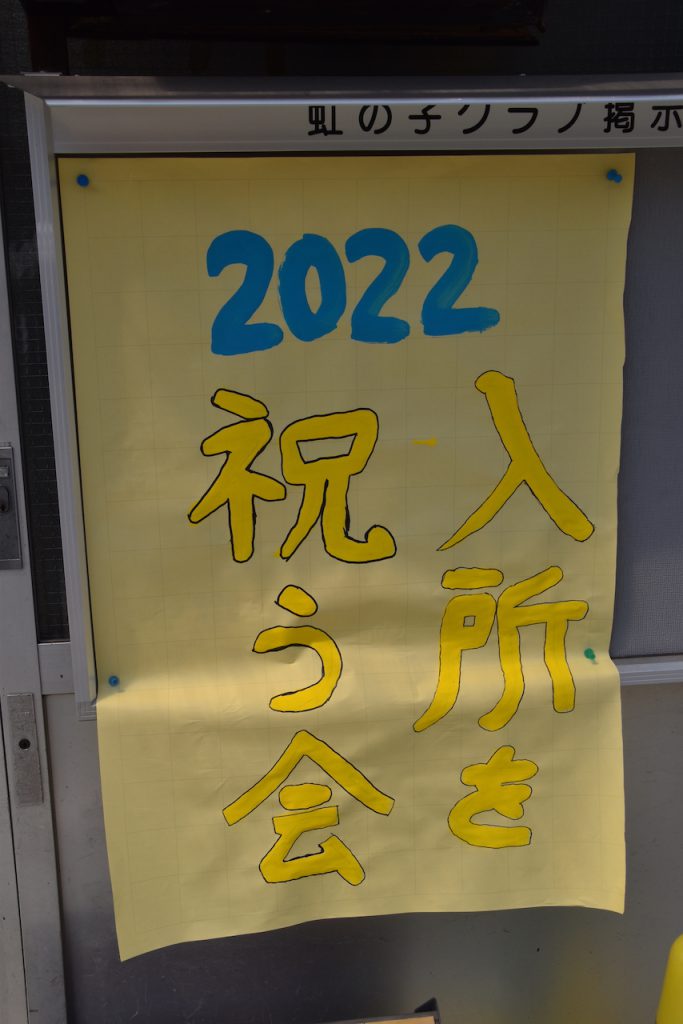 虹の子クラブ掲示
2022
入所を
祝う会